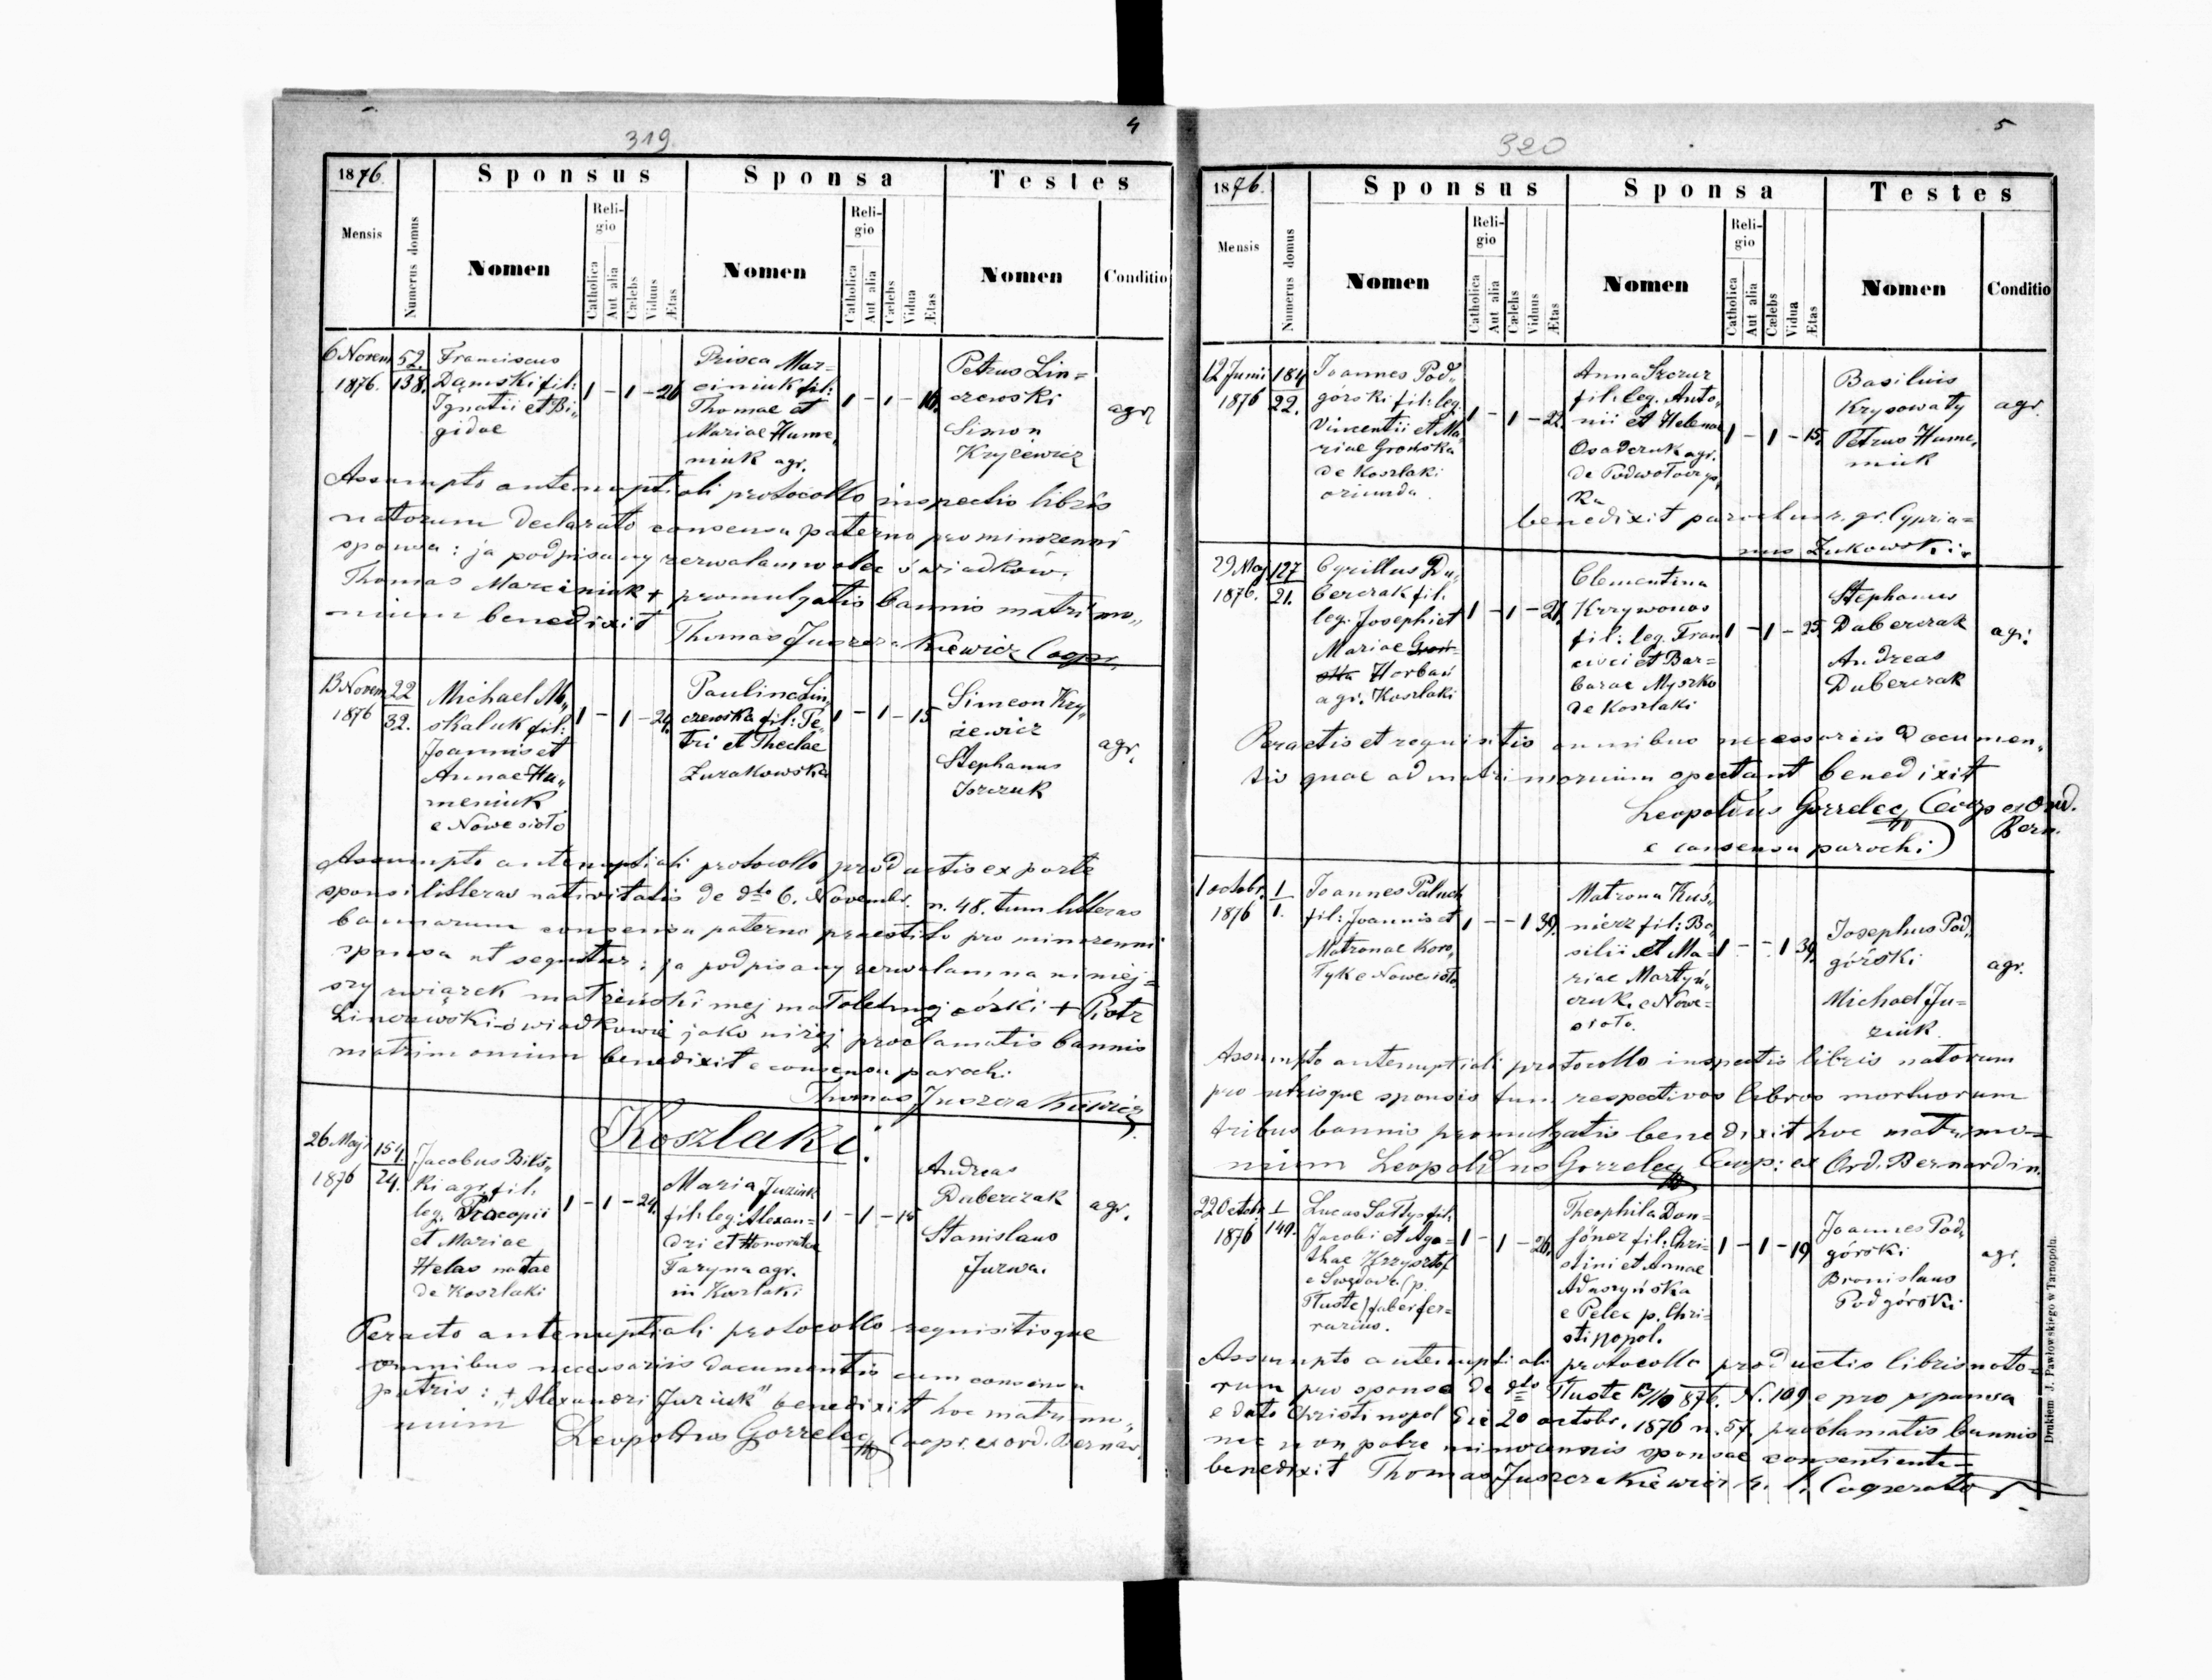 319
4
1876.
Sponsus
Sponsa
Testes
Mensis
Numerus domus
Nomen
Religio
Catholica
Aut alia
Cælebs
Viduus
Ætas
Nomen
Religio
Catholica
Aut alia
Cælebs
Vidua
Ætas
Nomen
Conditio
6 Novem
1876.
52.
138.
Franciscus
Damski fil:
Ignatii et Bi„
gidae
1 - 1 - 26
Prisca Mar=
ciniuk fil:
Thomae et
Mariae Hume„
niuk agr.
1 - 1 - 16.
Petrus Lin=
czewski
Simon
Kryżewicz
agr
Assumpto antenuptiali protocollo inspectis libris
natorum declarato consensu paterno pro minorenni
sponsa: ja podpisany zezwalam wobec świadków.
Thomas Marciniuk + promulgatis bannis matrimo„
nium benedixit
Thomas Juszczakiewicz Coopr.
13 Novem
1876
22
32.
Michael Mu„
skaluk fil:
Joannis et
Annae Hu„
meniuk
e Nowesioło
1 - 1 - 24.
Paulina Lin„
czewska fil: Pe„
tri et Theclae
Żurakowska
1 - 1 - 15
Simeon Kry„
żewicz
Stephanus
Torczuk
agr.
Assumpto antenuptiali protocollo productis ex parte
sponsi litteras nativitatis de dto 6. Novembr. n. 48. tum litteras
bannorum consensu paterno praestito pro minorenni
sponsa ut sequitur: ja podpisany zezwalam na niniej=
szy związek małżeński mej małoletniej córki + Piotr
Linczewski świadkowie jako niżej proclamatis bannis
matrimonium benedixit e consensu parochi
Thomas Juszczakiewicz
Koszlaki.
26 Maji
1876
154.
24.
Jacobus Bils„
ki agr. fil.
leg. Procopii
et Mariae
Helas natae
de Koszlaki
1 - 1 - 24.
Maria Juziuk
fil: leg: Alexan=
dri et Honoratae
Faryna agr.
in Koszlaki
1 - 1 - 18
Andreas
Duberczak
Stanislaus
Jurwa.
agr.
Peracto antenuptiali protocollo requisitisque
omnibus necessariis documentis cum consensu
patris: "+ Alexandri Juziuk" benedixit hoc matrimo„
nium
Leopoldus Gorzelec Coopr. ex ord. Bernar.
320
5
1876.
Sponsus
Sponsa
Testes
Mensis
Numerus domus
Nomen
Religio
Catholica
Aut alia
Cælebs
Viduus
Ætas
Nomen
Religio
Catholica
Aut alia
Cælebs
Vidua
Ætas
Nomen
Conditio
12 Junii
1876
184
22.
Joannes Pod„
górski fil: leg.
Vincentii et Ma„
riae Grońska
de Koszlaki
oriunda.
1 - 1 - 22.
Anna Szczur
fil: leg. Anto„
nii et Helenae
Osadczuk agr.
de Podwołoczys„
ka
1 - 1 - 15.
Basilius
Krysowaty
Petrus Hume„
niuk
agr.
benedixit parochus r. gr. Cypria=
nus Żukowski
29 Maj
1876.
127
21.
Cyrillus Du„
berczak fil.
leg. Josephi et
Mariae
Horbań
agr. Koszlaki
1 - 1 - 21.
Clementina
Krzywonos
fil: leg. Fran
cisci et Bar=
barae Myszko
de Koszlaki
1 - 1 - 25.
Stephanus
Duberczak
Andreas
Duberczak
agr:
Peractis et requisitis omnibus necessariis documen„
tis quae ad matrimonium spectant benedixit
Leopoldus Gorzelec Coop ex Ord.
Bern.
e consensu parochi
1 octobr.
1876
1
1.
Joannes Paluch
fil: Joannis et
Matronae Koro„
tyk e Nowesioło.
1 - - 1 39.
Matrona Kuś„
nierz fil: Ba„
silii et Ma=
riae Martyń„
czuk. e Nowe=
sioło.
1 - - 1 39.
Josephus Pod„
górski
Michael Ju=
ziuk
agr.
Assumpto antenuptiali protocollo inspectis libris natorum
pro utrisque sponsis tum respectivos libros mortuorum
tribus bannis promulgatis benedixit hoc matrimo=
nium Leopoldus Gorzelec Coop: ex Ord. Bernardin.
22 Octobr
1876
1
149.
Lucas Sałtys fil:
Jacobi et Aga=
thae Krzysztof
e Swędowa (p.
Tłuste) faber fer=
rarius.
1 - 1 - 26.
Theophila Don=
föner fil: Chri=
stini et Annae
Aduszyńska
e Pelec p. Chri=
stinopol.
1 - 1 - 19
Joannes Pod„
górski
Bronislaus
Podgórski
agr.
Assumpto antenuptiali protocollo productis libris nato=
rum pro sponso de dto Tłuste 12/10 876. N. 109 e pro sponsa
e dato Christinopol die 20 octobr. 1876 n. 57. proclamatis bannis
nec non patre minorennis sponsae consentiente=
benedixit Thomas Juszczakiewicz r. l. Cooperator
Drukiem J. Pawłowskiego w Tarnopolu.